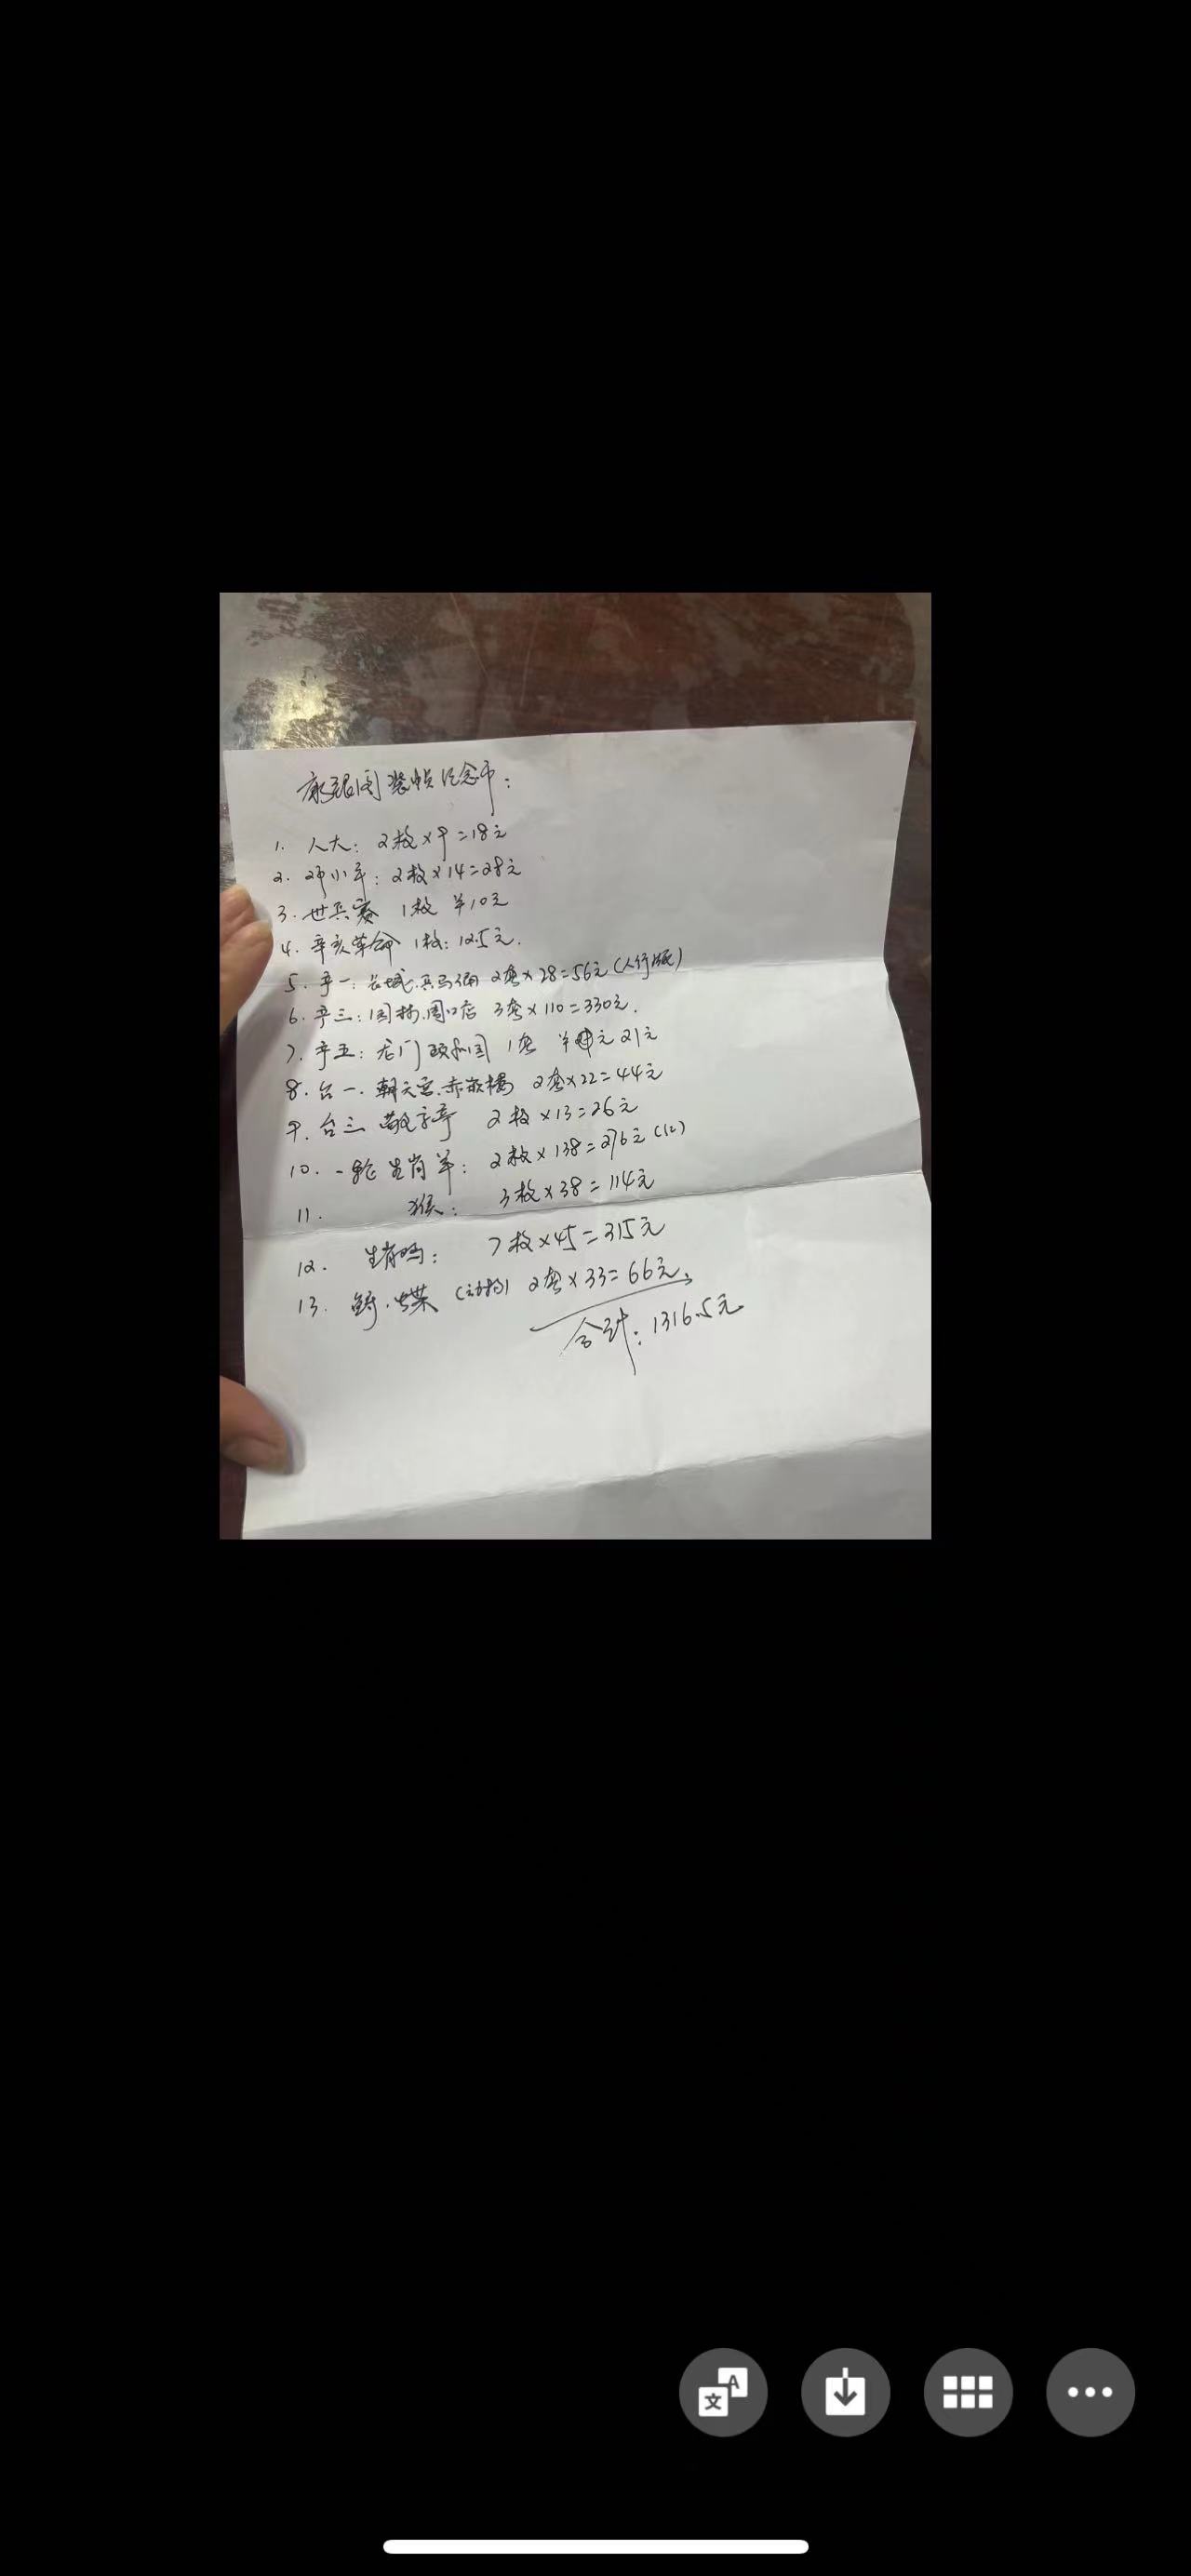 康银阁装帧纪念币：
1. 人大：2枚×9=18元
2. 邓小平：2枚×14=28元
3. 世乒赛 1枚 ¥10元
4. 辛亥革命 1枚：12.5元.
5. 平一：长城.兵马俑 2套×28=56元(人行版)
6. 平三：园林.周口店 3套×110=330元.
7. 平五：龙门 颐和园 1套 21元
8. 台一. 朝天宫.赤嵌楼 2套×22=44元
9. 台三 敬字亭 2枚×13=26元
10. 一轮生肖羊：2枚×138=276元(红)
11. 猴： 3枚×38=114元
12. 生肖鸡： 7枚×45=315元
13. 鲟.蝶 (动物) 2套×33=66元.
合计：1316.5元